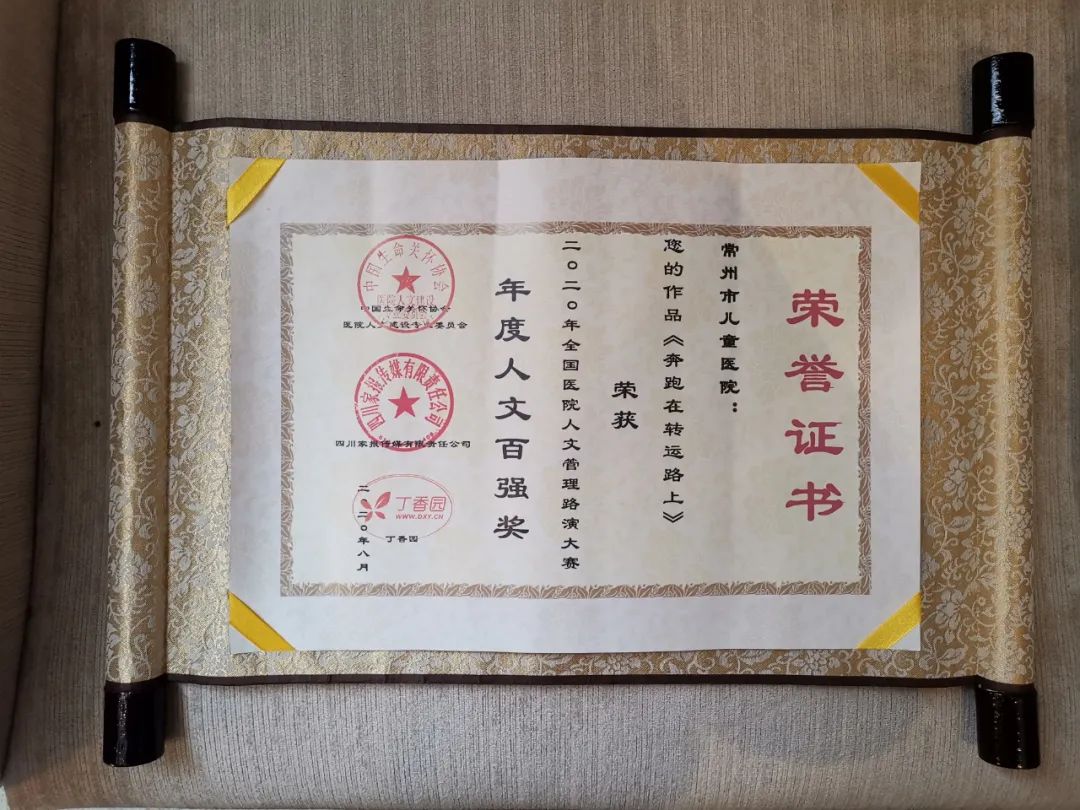 荣誉证书
常州市儿童医院：
您的作品《奔跑在转运路上》
荣获
二〇二〇年全国医院人文管理路演大赛
年度人文百强奖
中国生命关怀协会
医院人文建设
专业委员会
中国生命关怀协会
医院人文建设专业委员会
四川家报传媒有限责任公司
四川家报传媒有限责任公司
丁香园
WWW.DXY.CN
丁香园
二〇二〇年八月